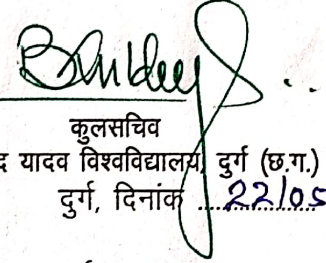 कुलसचिव
द यादव विश्वविद्यालय, दुर्ग (छ.ग.)
दुर्ग, दिनांक ..22/05